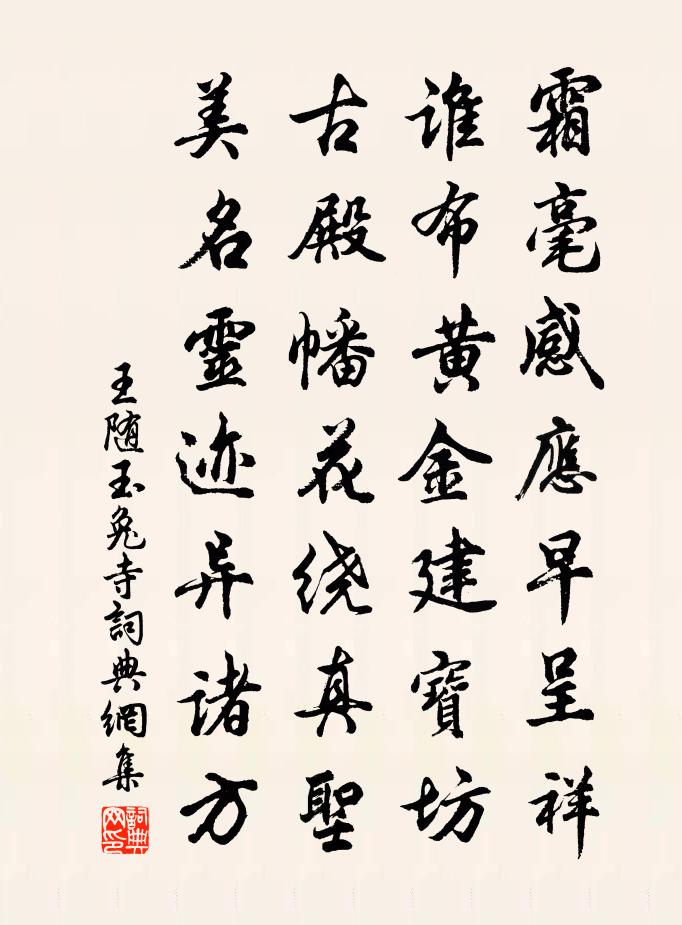 霜毫感應早呈祥
谁布黄金建寶坊
古殿幡花绕真聖
美名靈迹异诸方
王随玉兔寺詞典網集
詞典网印